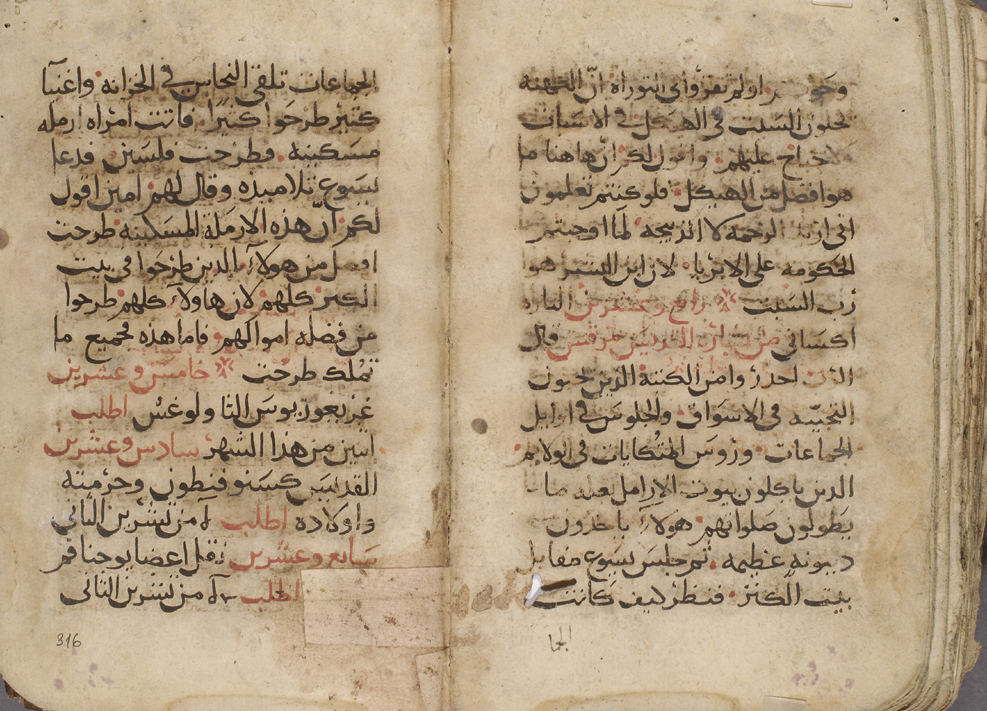 او لم تقرؤا في التوراة انّ الكهنه
يحلون السبت في الهيكل في الاسبات
جناح عليهم واقول لكم ان هاهنا ما
هو افضل من الهيكل فلو كنتم تعلمون
اني اريد الرحمه لا الذبيحه لما اوجبتم
الحكومه على الابريا لان ابن البشر هو
رب السبت رابع وعشرين
من بشاره القديس مرقس قال
الرب احذروا من الكتبة الذين يحبون
التحيّه في الاسواق والجلوس في اوايل
الجماعات وروس المتكايات في الولايم
الذين ياكلون بيوت الارامل بعله ما
يطولون صلواتهم هولاء ياخذون
دينونه عظيمه ثم جلس يسوع مقابل
بيت الكنز فنظر كيف كانت
الجما
الجماعات تلقي النحاس في الخزانه واغنيا
كثير طرحوا كثيرا فاتت امراه ارمله
مسكينه فطرحت فلسين فدعا
يسوع تلاميذه وقال لهم امين اقول
لكم ان هذه الارملة المسكينه طرحت
افضل من هولاء الذين طرحوا في بيت
الكنز كلهم لان هاولاء كلهم طرحوا
من فضله اموالهم فاما هذه فجميع ما
تملك طرحت خامس وعشرين
غريغوريوس الثاولوغس اطلب
اثنين من هذا الشهر سادس وعشرين
القديس كسنوفنطون وحرمته
واولاده اطلب من تشرين الثاني
سابع وعشرين نقل اعضا يوحنا فم
اطلب من تشرين الثاني
316